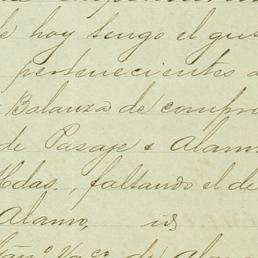 de hoy tengo el gus
pertenecientes a
Balanza de compro
de Pasaje & Alam
Hdas., faltando el de
Alamo,
de